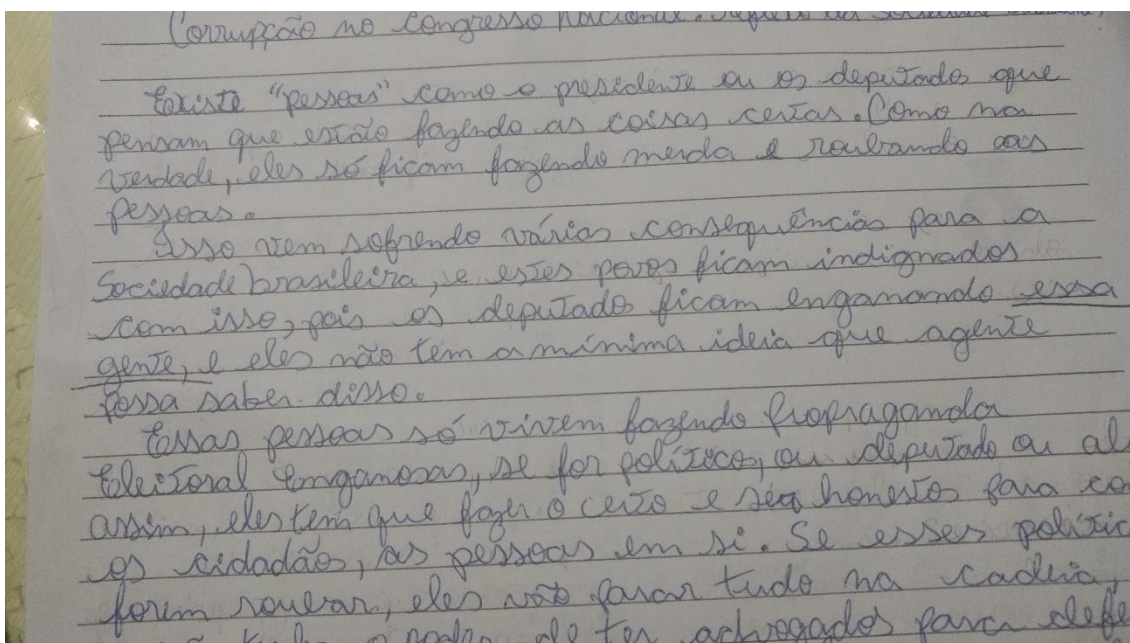 Corrupção no congresso nacional.
Existe "pessoas" como o presidente ou os deputados que
pensam que estão fazendo as coisas certas. Como na
verdade, eles só ficam fazendo merda e roubando aos
pessoas.
Isso vem sofrendo várias consequências para a
Sociedade brasileira, e estes povos ficam indignados
com isso, pois os deputado ficam enganando essa
gente, e eles não tem a mínima ideia que agente
possa saber disso.
Essas pessoas só vivem fazendo propraganda
Eleitoral enganosas, se for político, ou deputado ou al
assim, eles tem que fazer o certo e ser honestos para co
os cidadão, as pessoas em si. Se esses polític
forem roubar, eles vão parar tudo na cadeia,
tenha o poder de ter advogados para defe